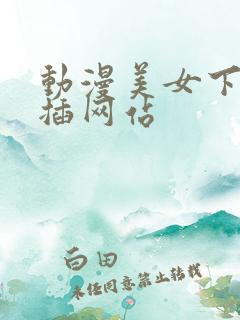 動漫美女下
插网佔
白田
未经同意禁止转载